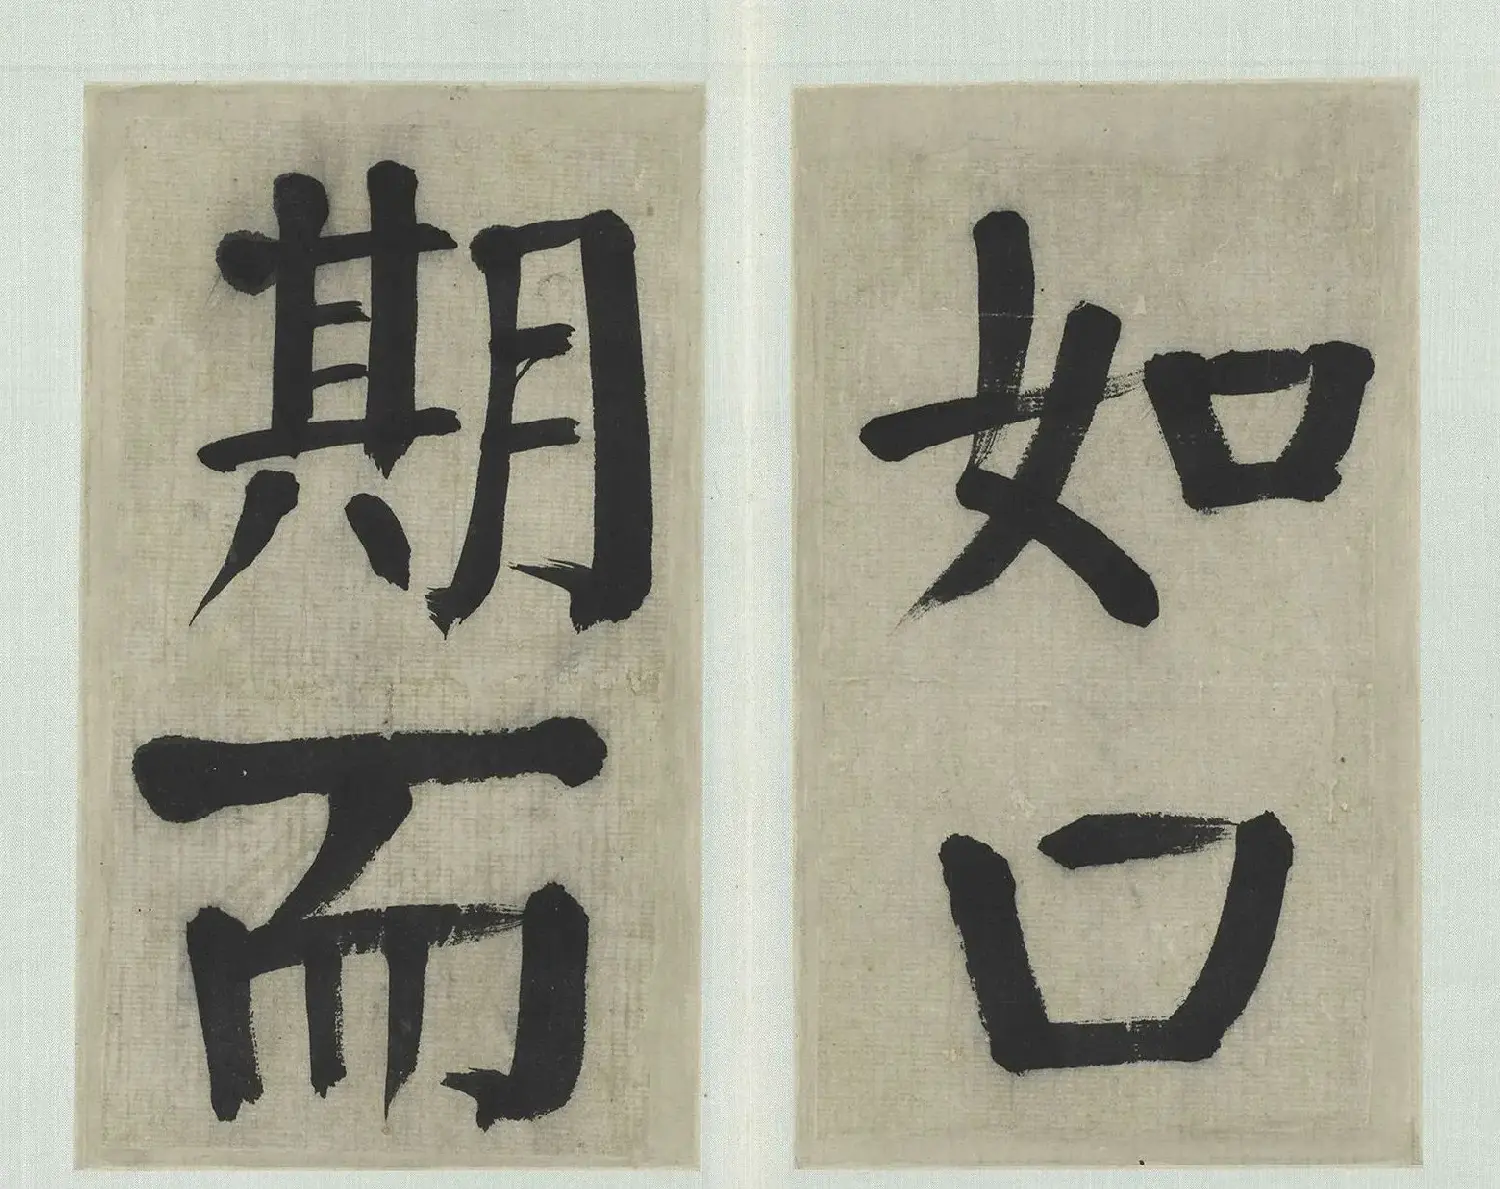 如口
期而